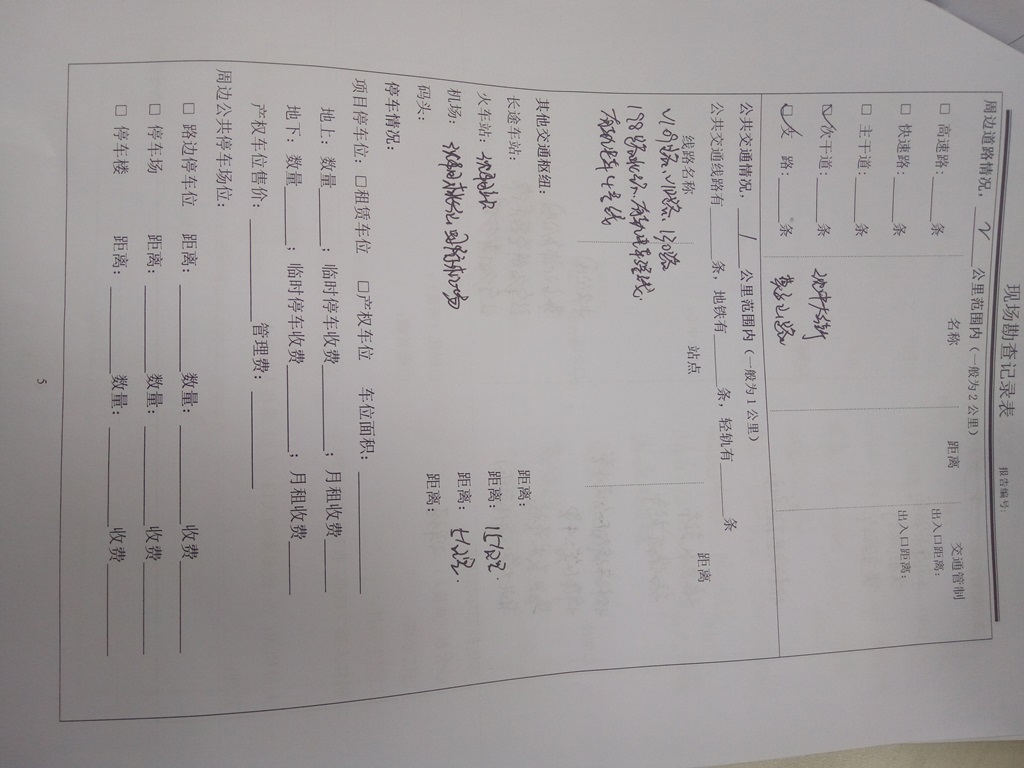 现场勘查记录表
报告编号:
周边道路情况, 2 公里范围内（一般为2公里）
名称 距离 交通管制
□ 高速路:____条 出入口距离:
□ 快速路:____条 出入口距离:
□ 主干道:____条
☑ 次干道:____条
☑ 支 路:____条
公共交通情况, 1 公里范围内（一般为1公里）
公共交通线路有____条, 地铁有____条, 轻轨有____条
线路名称 站点 距离
130路
其他交通枢纽:
长途车站: 距离:
火车站: 距离: 15公里.
机场: 国际机场 距离: 公里.
码头: 距离:
停车情况:
项目停车位: □租赁车位 □产权车位 车位面积:________
地上: 数量____; 临时停车收费________; 月租收费____
地下: 数量____; 临时停车收费________; 月租收费____
产权车位售价:________管理费:________
周边公共停车场位:
□ 路边停车位 距离:________数量:________收费________
□ 停车场 距离:________数量:________收费________
□ 停车楼 距离:________数量:________收费________
5